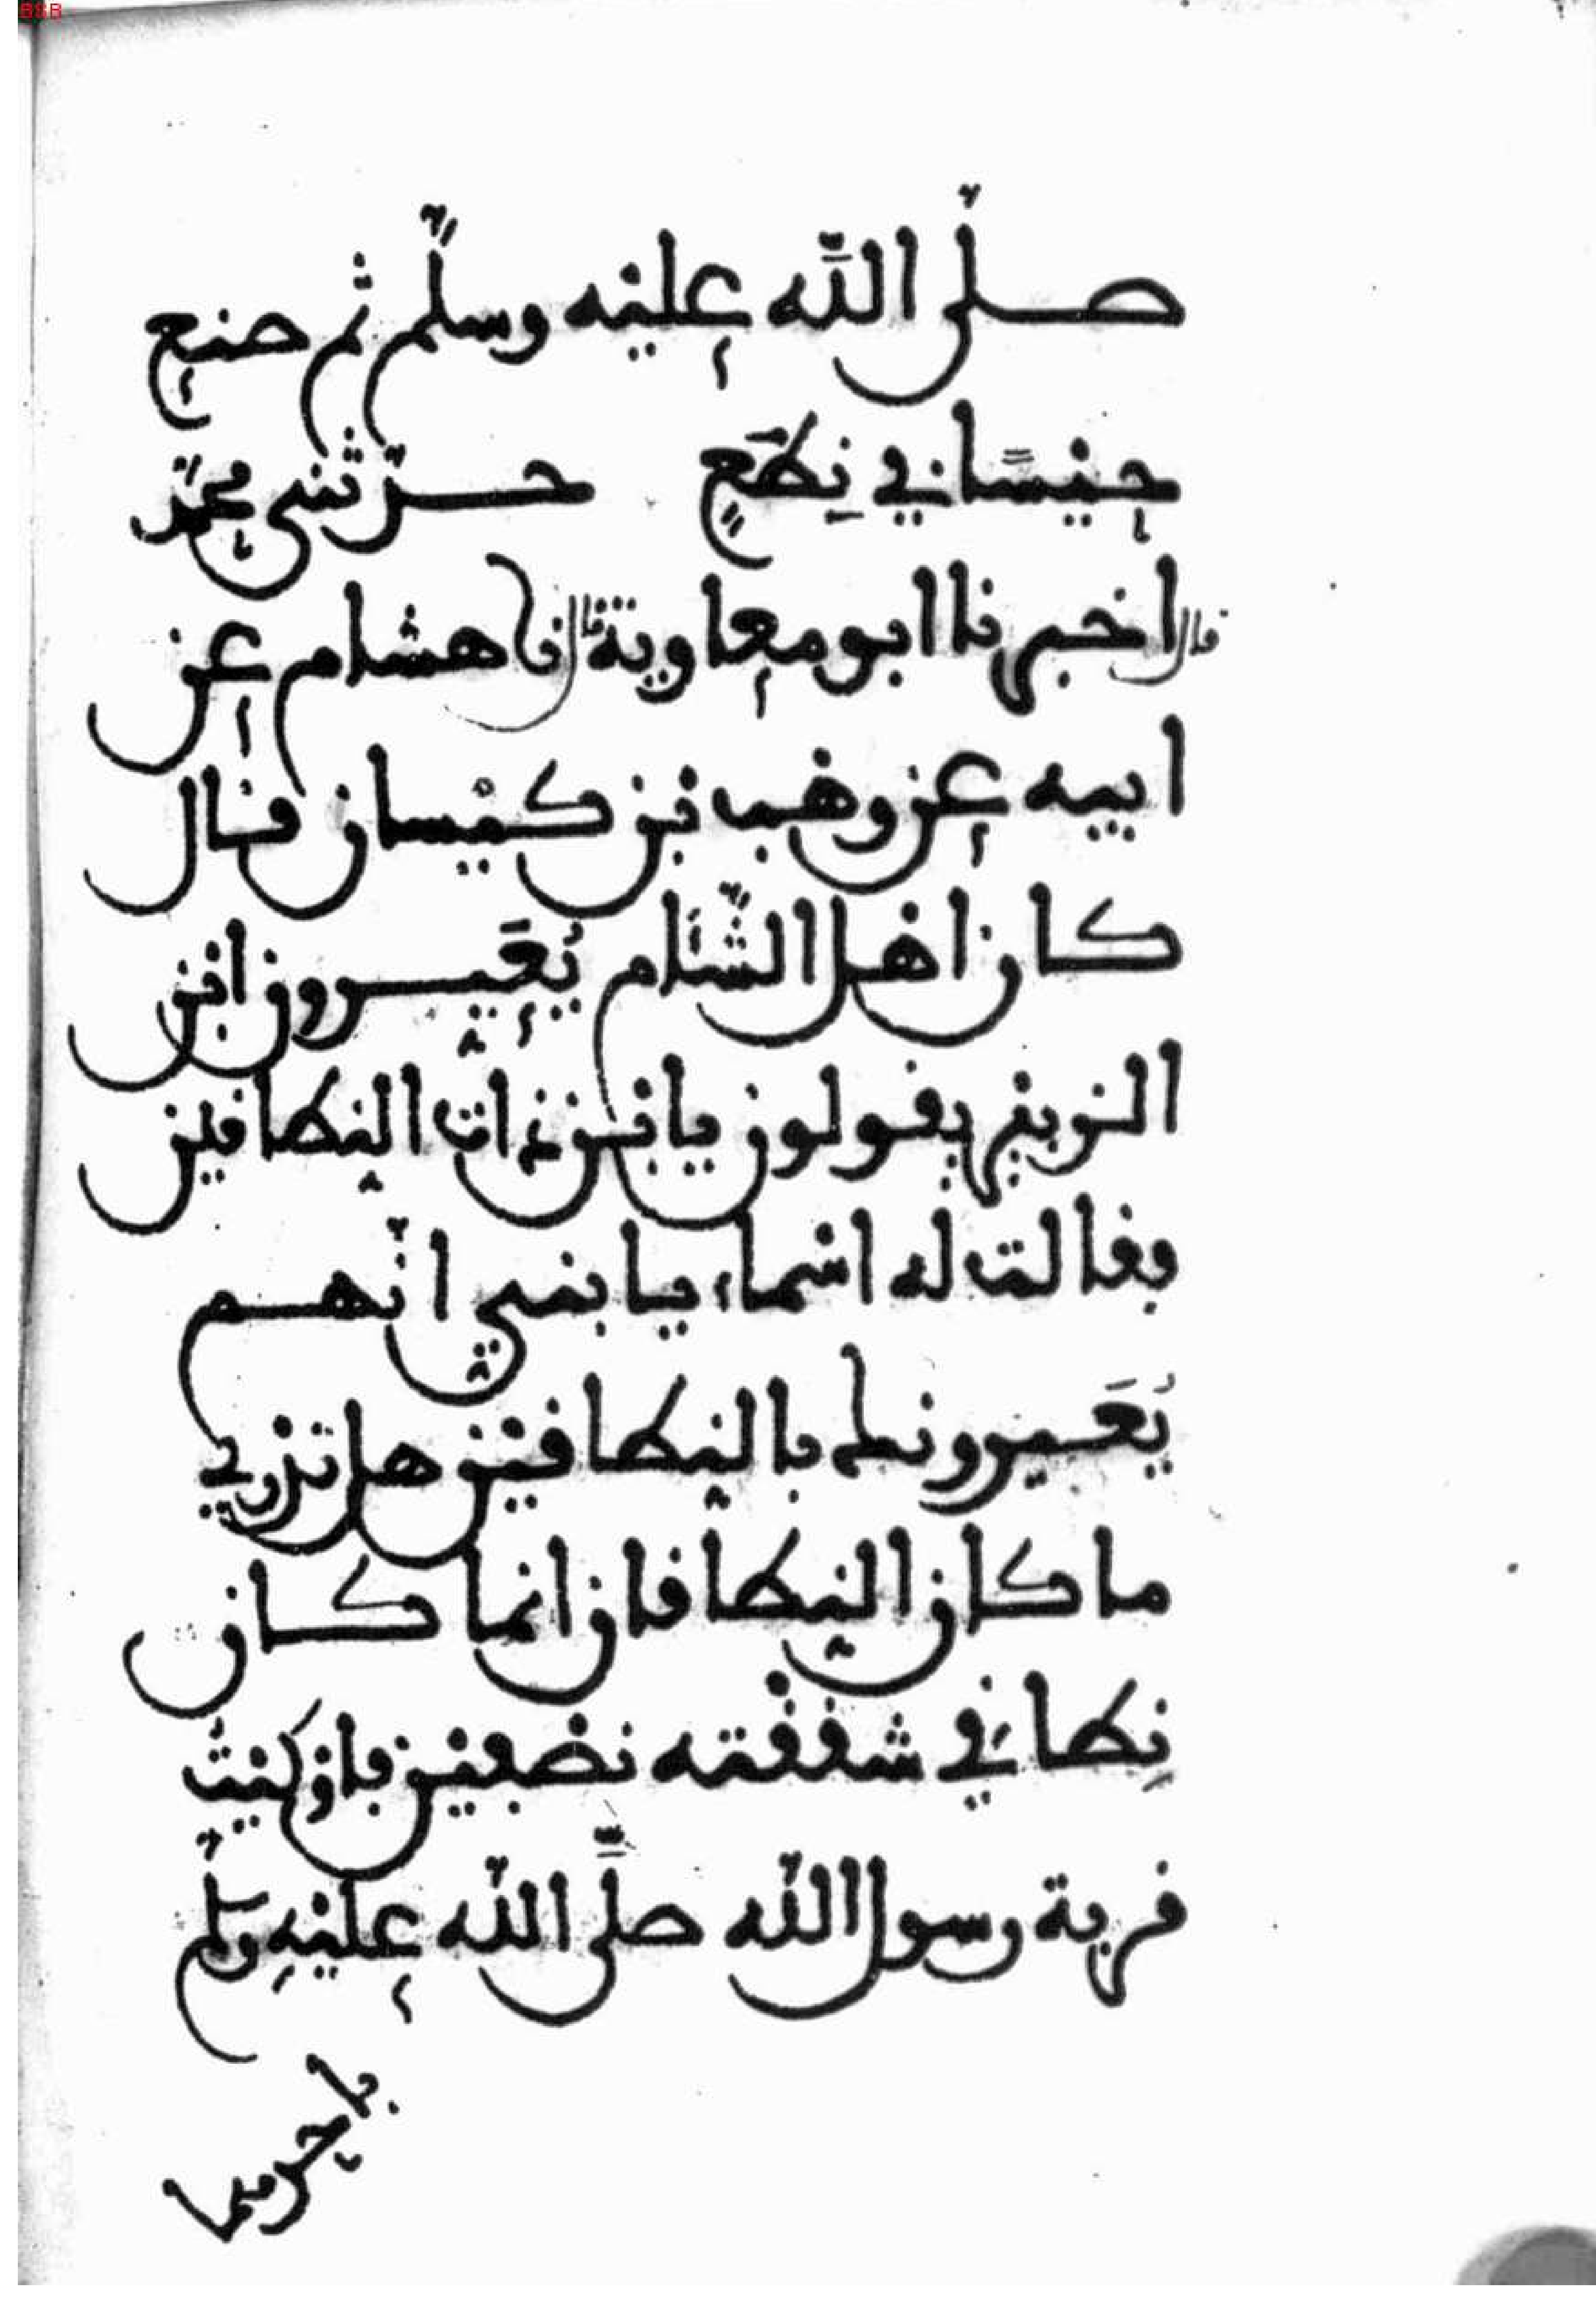 BSB
صلّى اللّه عليْه وسلّم ثم صنع
حيْسًا في نِطَعٍ حدّثني محمّد
قال اخبرنا ابو معاوية قال نا هشام عن
ابيه عن وهْب بْن كيْسان قال
كان اهْل الشّأم يُعَيّرون ابْن
الزبيْر يقولون يابْن ذات النطاقين
فقالت له اسْماء يا بنيّ انّهم
يُعَيرونك بالنطاقيْن هل تدري
ما كان النطاقان انما كان
نِطاقي شققْته نصْفيْن فاوْكيْتُ
قربة رسول اللّه صلَّى اللّه عليْهِ وسلّم
باحدهما